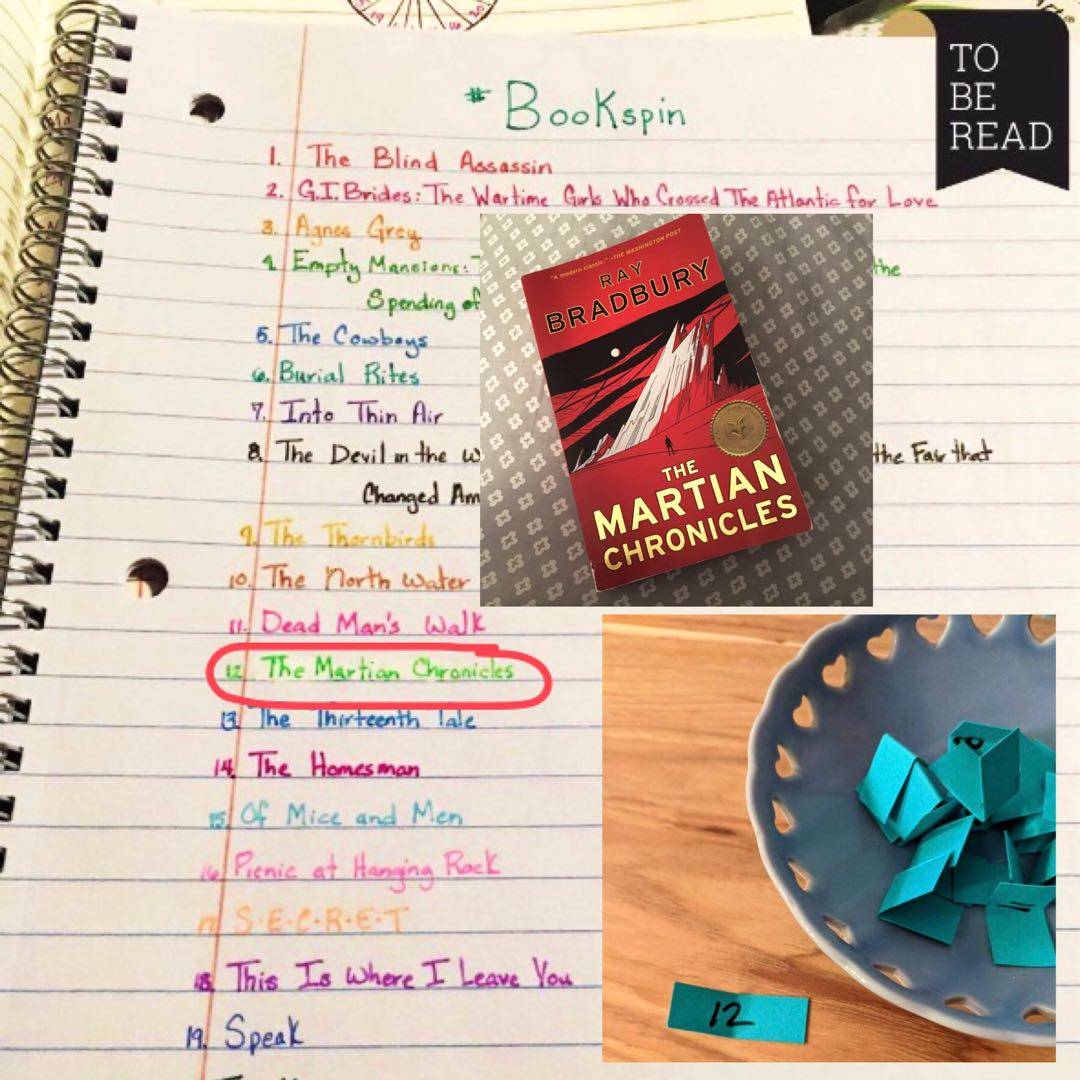 TO
BE
READ
# Bookspin
1. The Blind Assassin
2. G.I. Brides: The Wartime Girls Who Crossed The Atlantic for Love
3. Agnes Grey
4. Empty Mansions: the
Spending of
5. The Cowboys
6. Burial Rites
7. Into Thin Air
8. The Devil in the W the Fair that
Changed Am
9. The Thornbirds
10. The North Water
11. Dead Man's Walk
12. The Martian Chronicles
13. The Thirteenth Tale
14. The Homesman
15. Of Mice and Men
16. Picnic at Hanging Rock
17. S.E.C.R.E.T
18. This Is Where I Leave You
19. Speak
"A modern classic." -THE WASHINGTON POST
RAY
BRADBURY
THE
MARTIAN
CHRONICLES
12